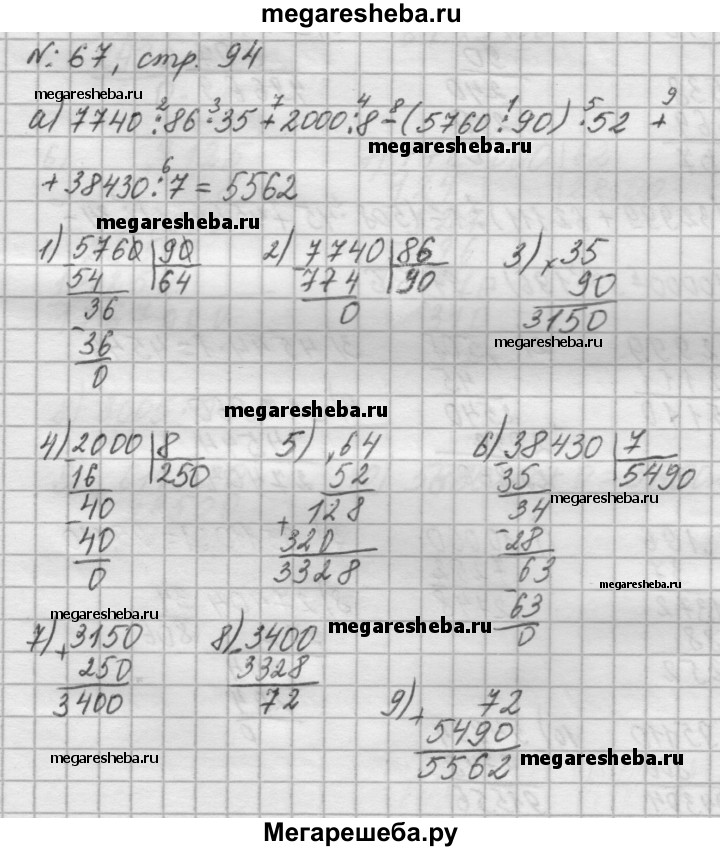 megaresheba.ru
№ 67, стр. 94
megaresheba.ru
2 3 7 4 8 1 5 9
а) 7740 : 86 · 35 + 2000 : 8 - (5760 : 90) · 52 +
megaresheba.ru
6
+ 38430 : 7 = 5562
megaresheba.ru
1) 5760 | 90
54 | 64
36
- 36
0
2) 7740 | 86
774 | 90
0
3) × 35
90
3150
megaresheba.ru
megaresheba.ru
4) 2000 | 8
16 | 250
- 40
- 40
0
5) × 64
52
128
+ 320
3328
6) - 38430 | 7
35 | 5490
34
- 28
63
- 63
0
megaresheba.ru
megaresheba.ru
megaresheba.ru
7) + 3150
250
3400
8) - 3400
3328
72
megaresheba.ru
9) + 72
5490
5562
megaresheba.ru
megaresheba.ru
Мегарешеба.ру